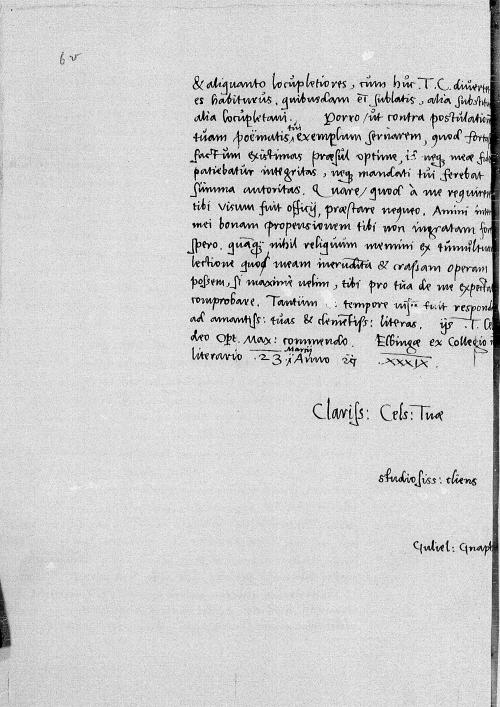 6v
& aliquanto locupletiores, cum huc .T.C. diverte
es habiturus, quibusdam et sublatis, alia substitu
alia locupletavi. Porro, ut contra postulation
tuam poëmatis tui exemplum servarem, quod forta
factum existimas præsul optime, is neque meæ fid
patiebatur integritas, neque mandati tui ferebat
summa autoritas. Quare, quod à me requirere
tibi visum fuit officij, præstare nequeo. Animi
mei bonam propensionem tibi non ingratam for
spero. quamquam nihil reliquum memini ex
lectione quod meam ineruditam & crassam operam
possem, si maxime velim, tibi pro tua de me expecta
comprobare. Tantum tempore fuit respond
ad amantiss: tuas & clementiss: literas. T. Ce
deo Opt. Max: commendo. Elbingæ ex Collegio
literario .23. Martij Anno XXXIX.
Clariss: Cels: Tuæ
studiosiss: cliens
Guliel: Gnaph